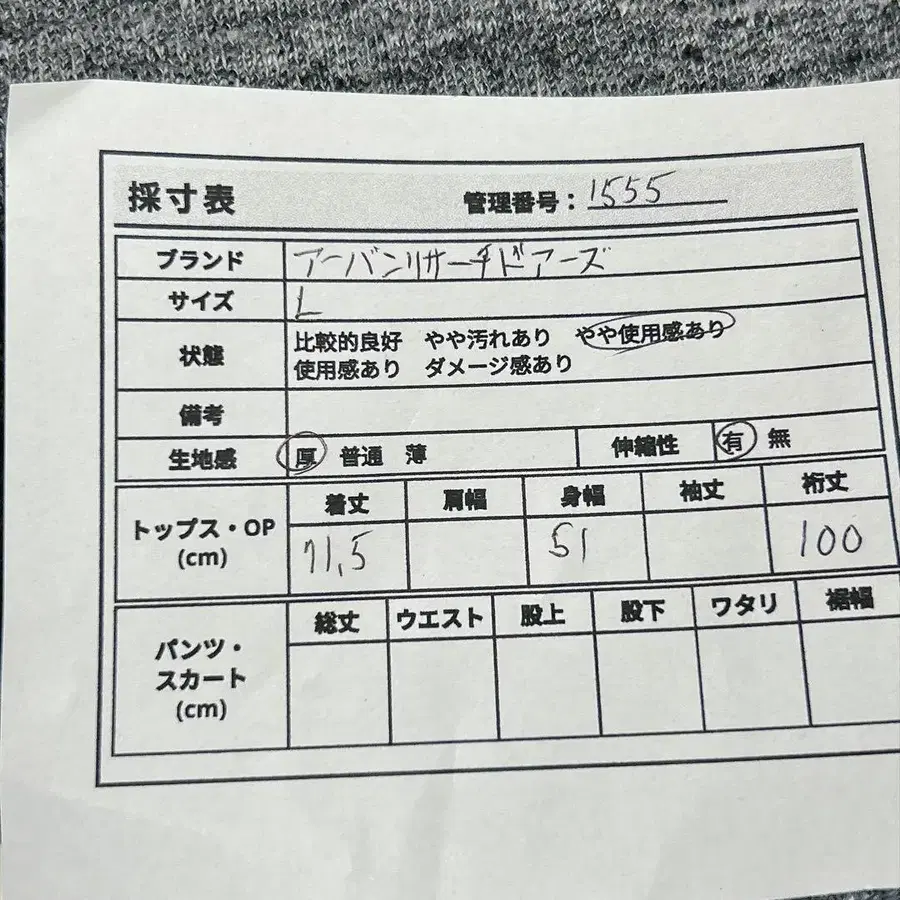 採寸表 管理番号：1555
ブランド アーバンリサーチドアーズ
サイズ L
状態 比較的良好 やや汚れあり やや使用感あり
使用感あり ダメージ感あり
備考
生地感 厚 普通 薄 伸縮性 有 無
トップス・OP
(cm)
着丈 肩幅 身幅 袖丈 裄丈
71,5 51 100
パンツ・
スカート
(cm)
総丈 ウエスト 股上 股下 ワタリ 裾幅